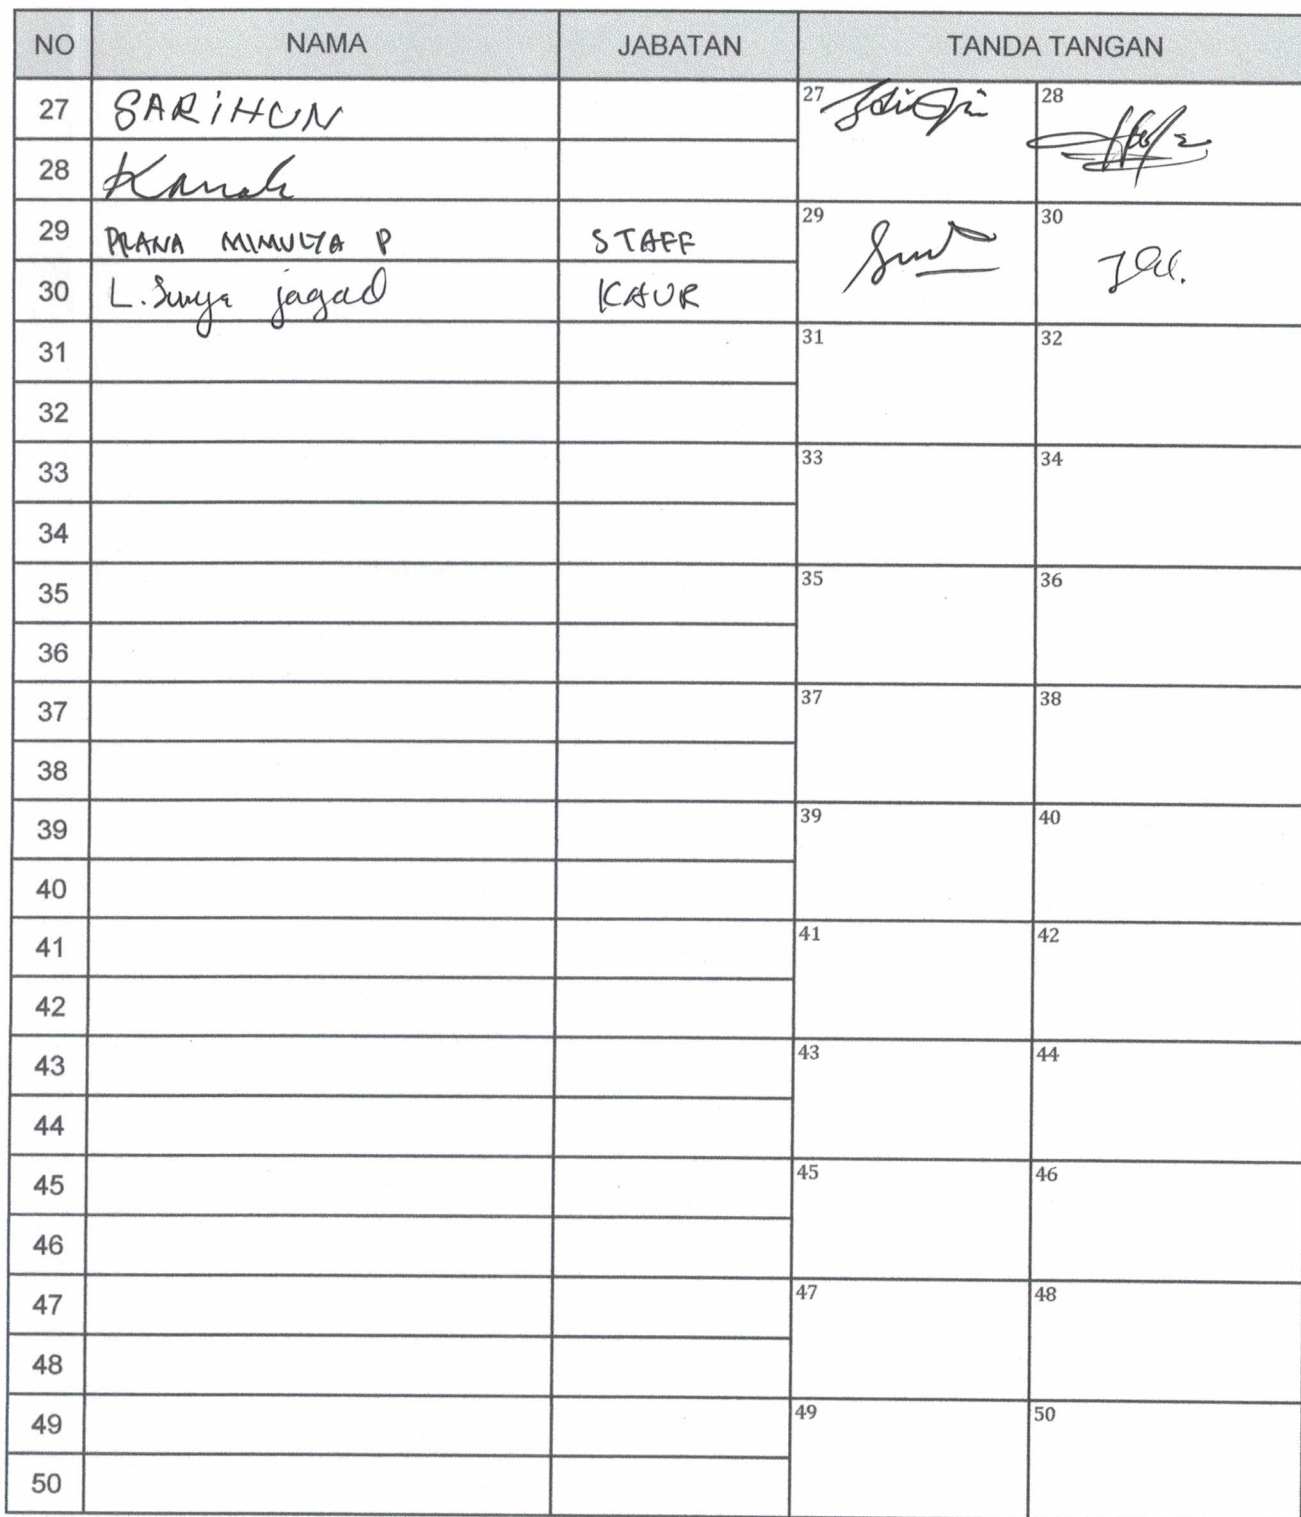 NO NAMA JABATAN TANDA TANGAN
27 SARiHUN 27 28
28
29 PRANA MIMULYA P STAFF 29 30
30 L. Surya jagad KAUR
31 31 32
32
33 33 34
34
35 35 36
36
37 37 38
38
39 39 40
40
41 41 42
42
43 43 44
44
45 45 46
46
47 47 48
48
49 49 50
50